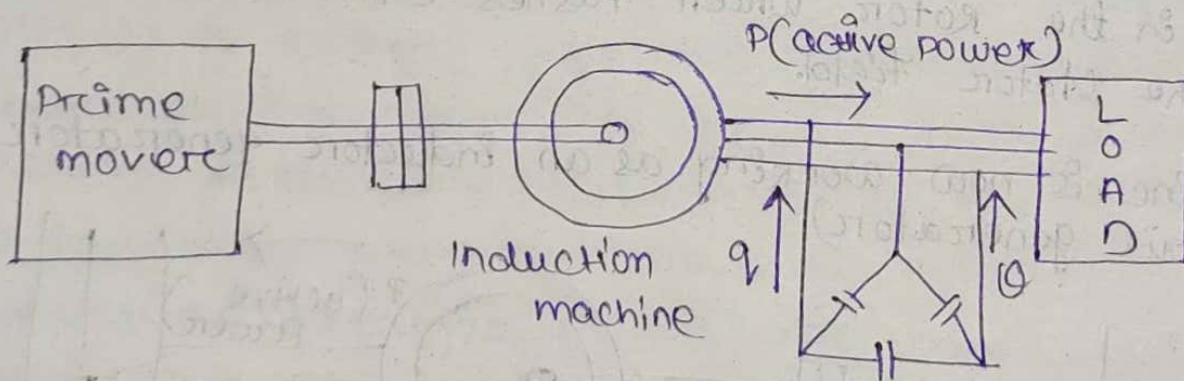 P(active power)
Prime
movere
LOAD
q
Q
Induction
machine